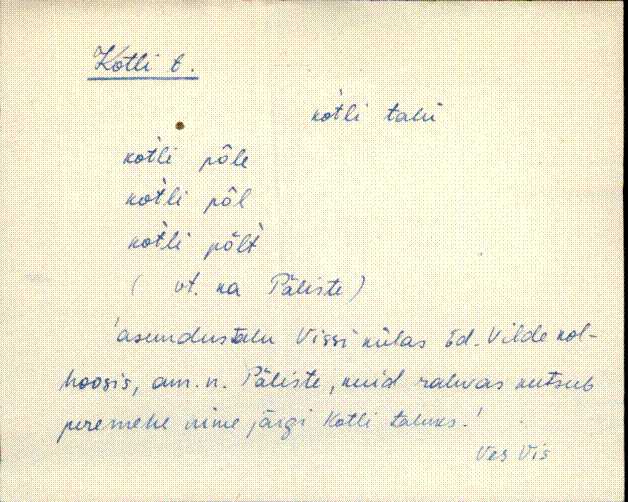 Kotli t.
kotli talu
kotli põle
kotli põl
kotli põlt
( vt. ka Päliste )
'asundustalu Vissi külas Ed. Vilde kol-
hoosis, am. n. Päliste, kuid rahvas kutsub
peremehe nime järgi Kotli taluks.'
Ves Vis